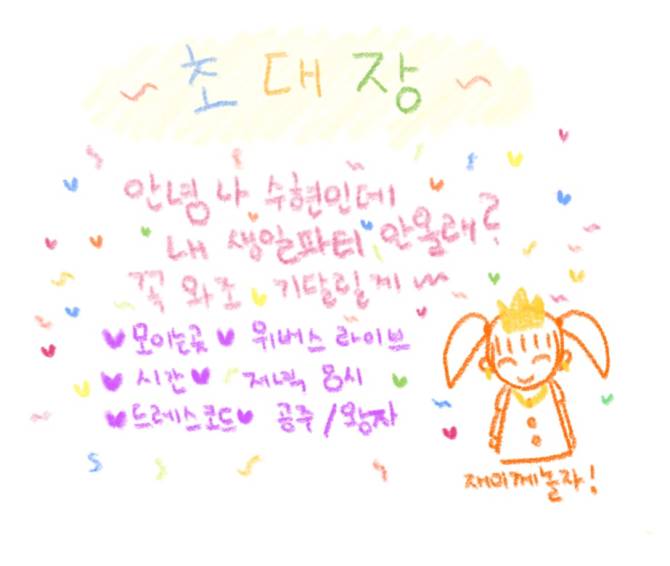 ~ 초대장 ~
안녕 나 수현인데
내 생일파티 안올래?
꼭 와조 기달릴게 ~
♥ 모이는곳 ♥ 위버스 라이브
♥ 시간 ♥ 저녁 8시
♥ 드레스코드 ♥ 공주 / 왕자
재미께놀자!